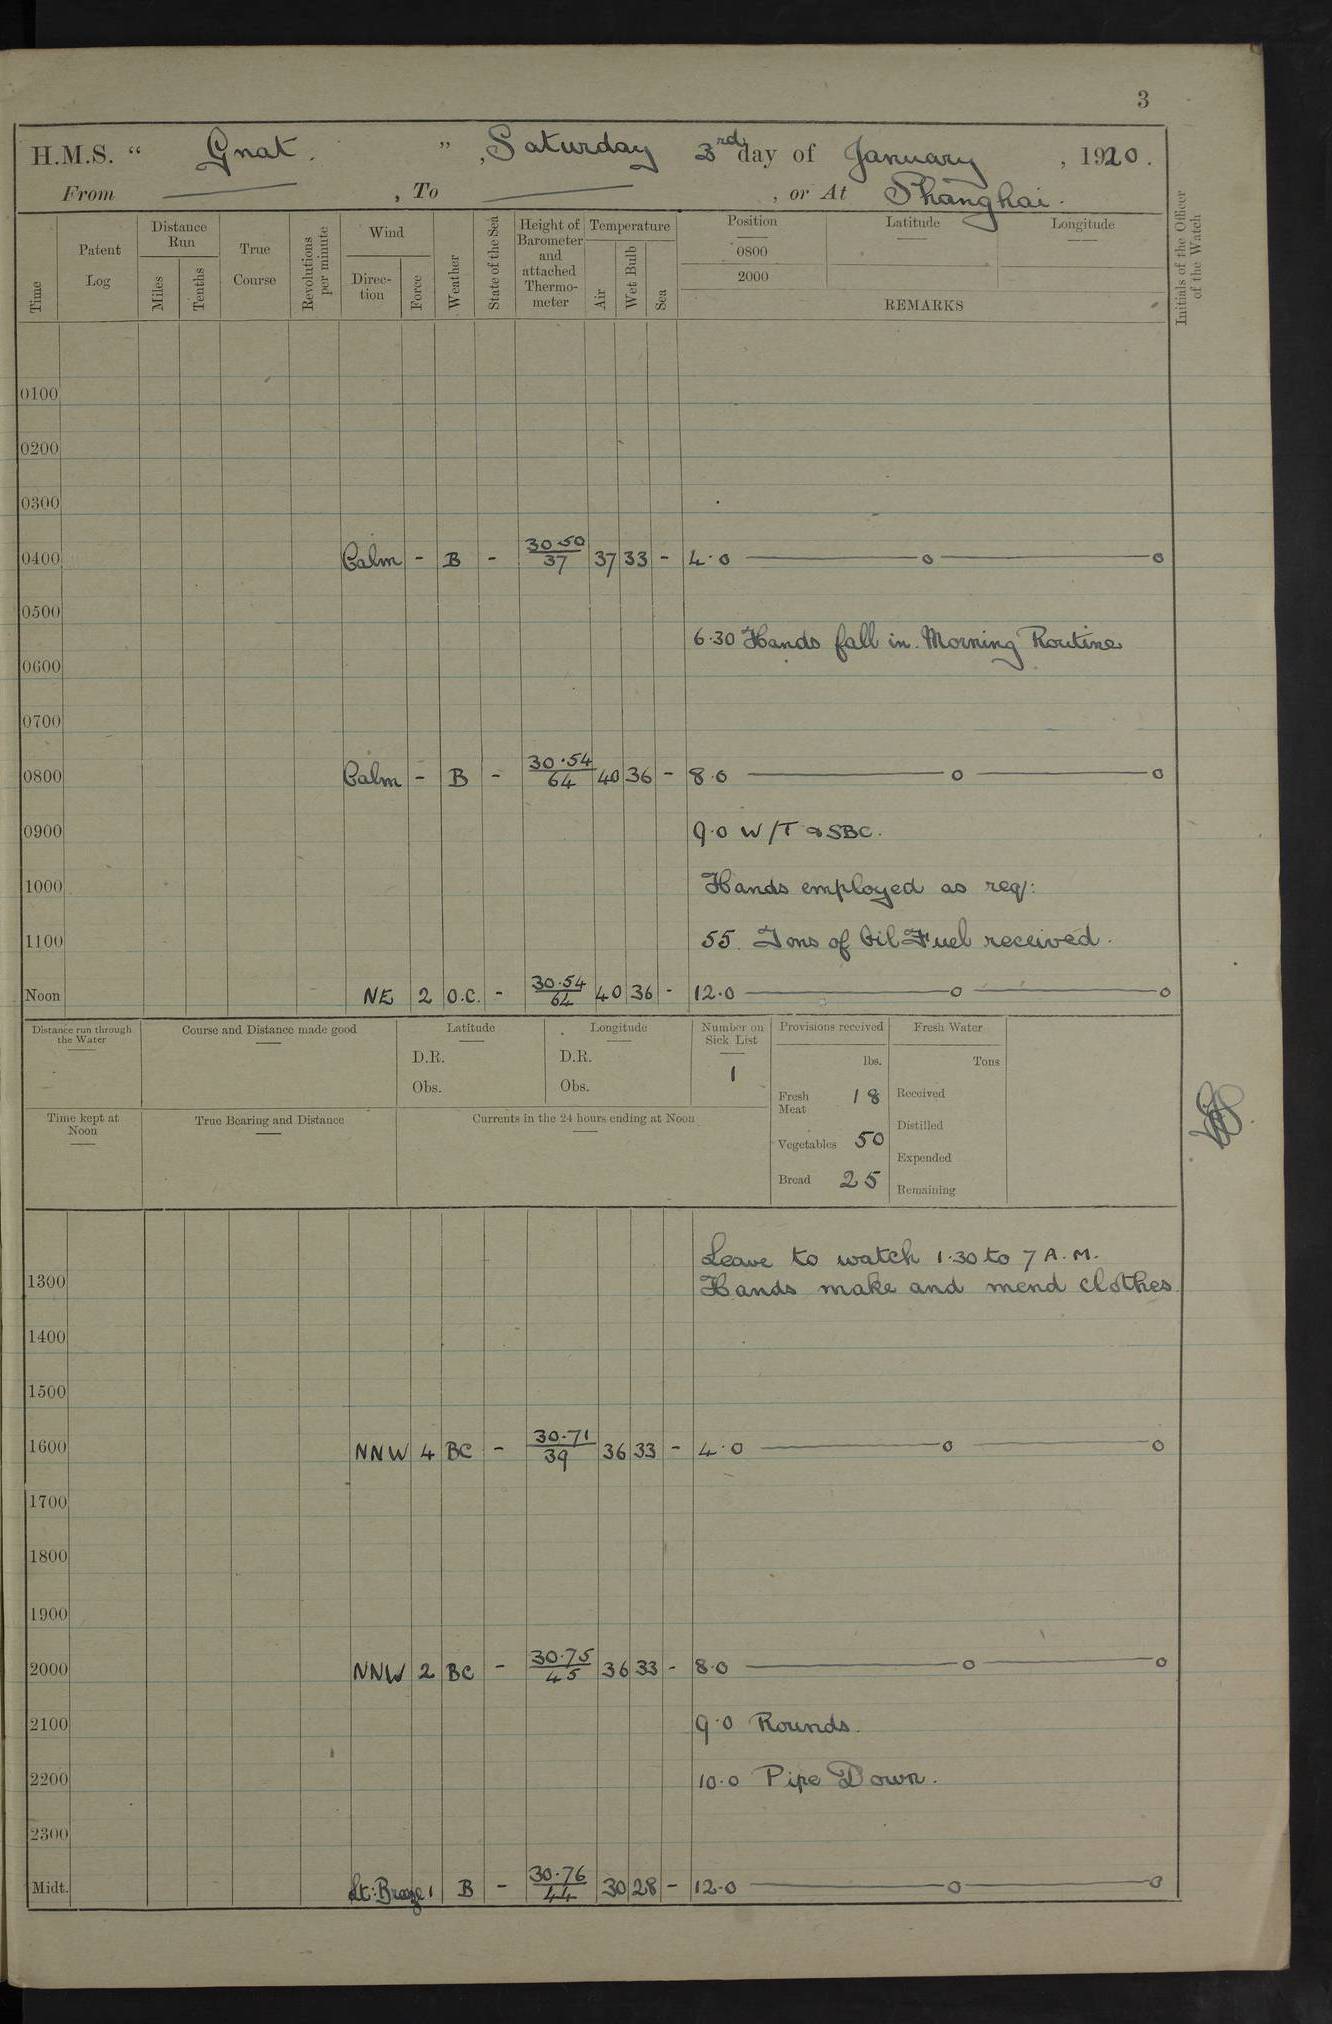 3
H.M.S. “ Gnat. ” , Saturday 3rd day of January , 1920.
From —— , To —— , or At Shanghai.
Time
Patent Log
Distance Run
Miles
Tenths
True Course
Revolutions per minute
Wind
Direc-tion
Force
Weather
State of the Sea
Height of Barometer and attached Thermo-meter
Temperature
Air
Wet Bulb
Sea
Position Latitude Longitude
0800
2000
REMARKS
Initials of the Officer of the Watch
0100
0200
0300
0400 Calm - B - 30.50/37 37 33 - 4.0 —— o —— o
0500
6.30 Hands fall in. Morning Routine
0600
0700
0800 Calm - B - 30.54/64 40 36 - 8.0 —— o —— o
0900 9.0 W/T & SBC.
1000 Hands employed as req:
1100 55 Tons of Oil Fuel received.
Noon NE 2 O.C. - 30.54/64 40 36 - 12.0 —— o —— o
Distance run through the Water
Course and Distance made good
Latitude
D.R.
Obs.
Longitude
D.R.
Obs.
Number on Sick List
1
Provisions received
lbs.
Fresh Meat 18
Vegetables 50
Bread 25
Fresh Water
Tons
Received
Distilled
Expended
Remaining
Time kept at Noon
True Bearing and Distance
Currents in the 24 hours ending at Noon
Leave to watch 1.30 to 7 A.M.
1300 Hands make and mend clothes.
1400
1500
1600 NNW 4 BC - 30.71/39 36 33 - 4.0 —— o —— o
1700
1800
1900
2000 NNW 2 BC - 30.75/45 36 33 - 8.0 —— o —— o
2100 9.0 Rounds.
2200 10.0 Pipe Down.
2300
Midt. Lt: Breeze 1 B - 30.76/44 30 28 - 12.0 —— o —— o